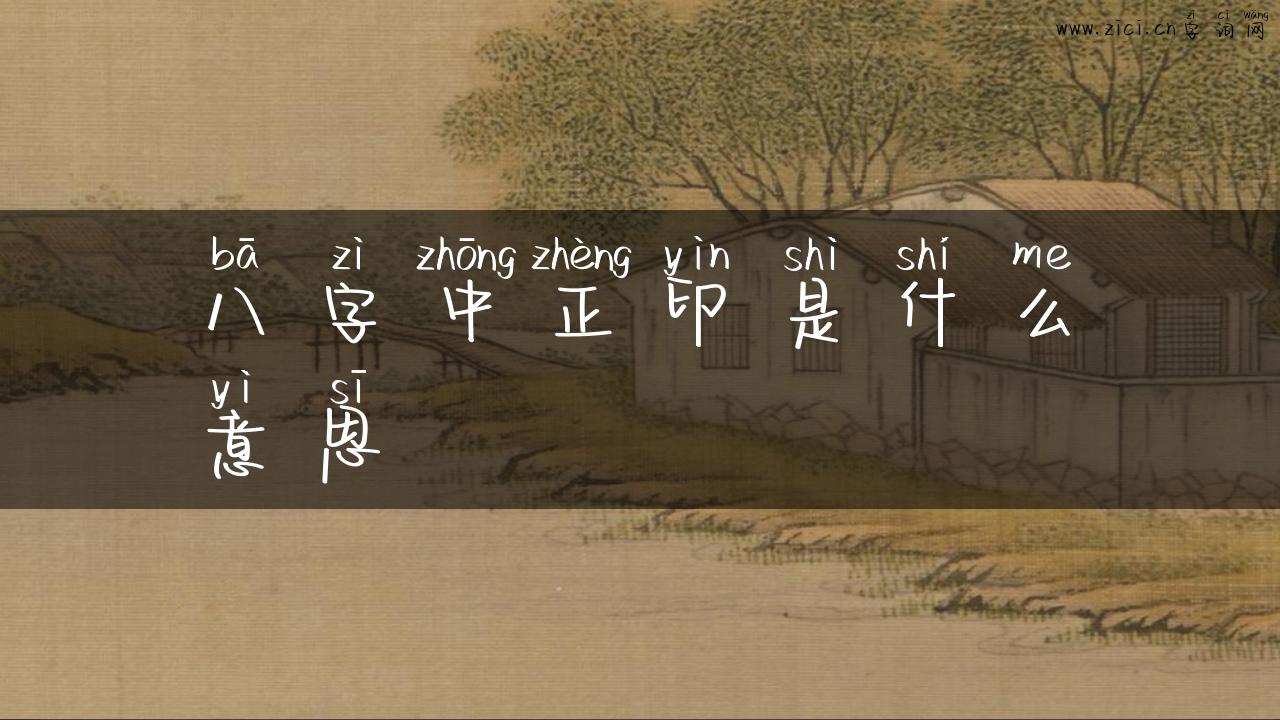 www.zici.cn字词网
zì cí wǎng
bā zì zhōng zhèng yìn shì shí me
八字中正印是什么
yì sī
意思